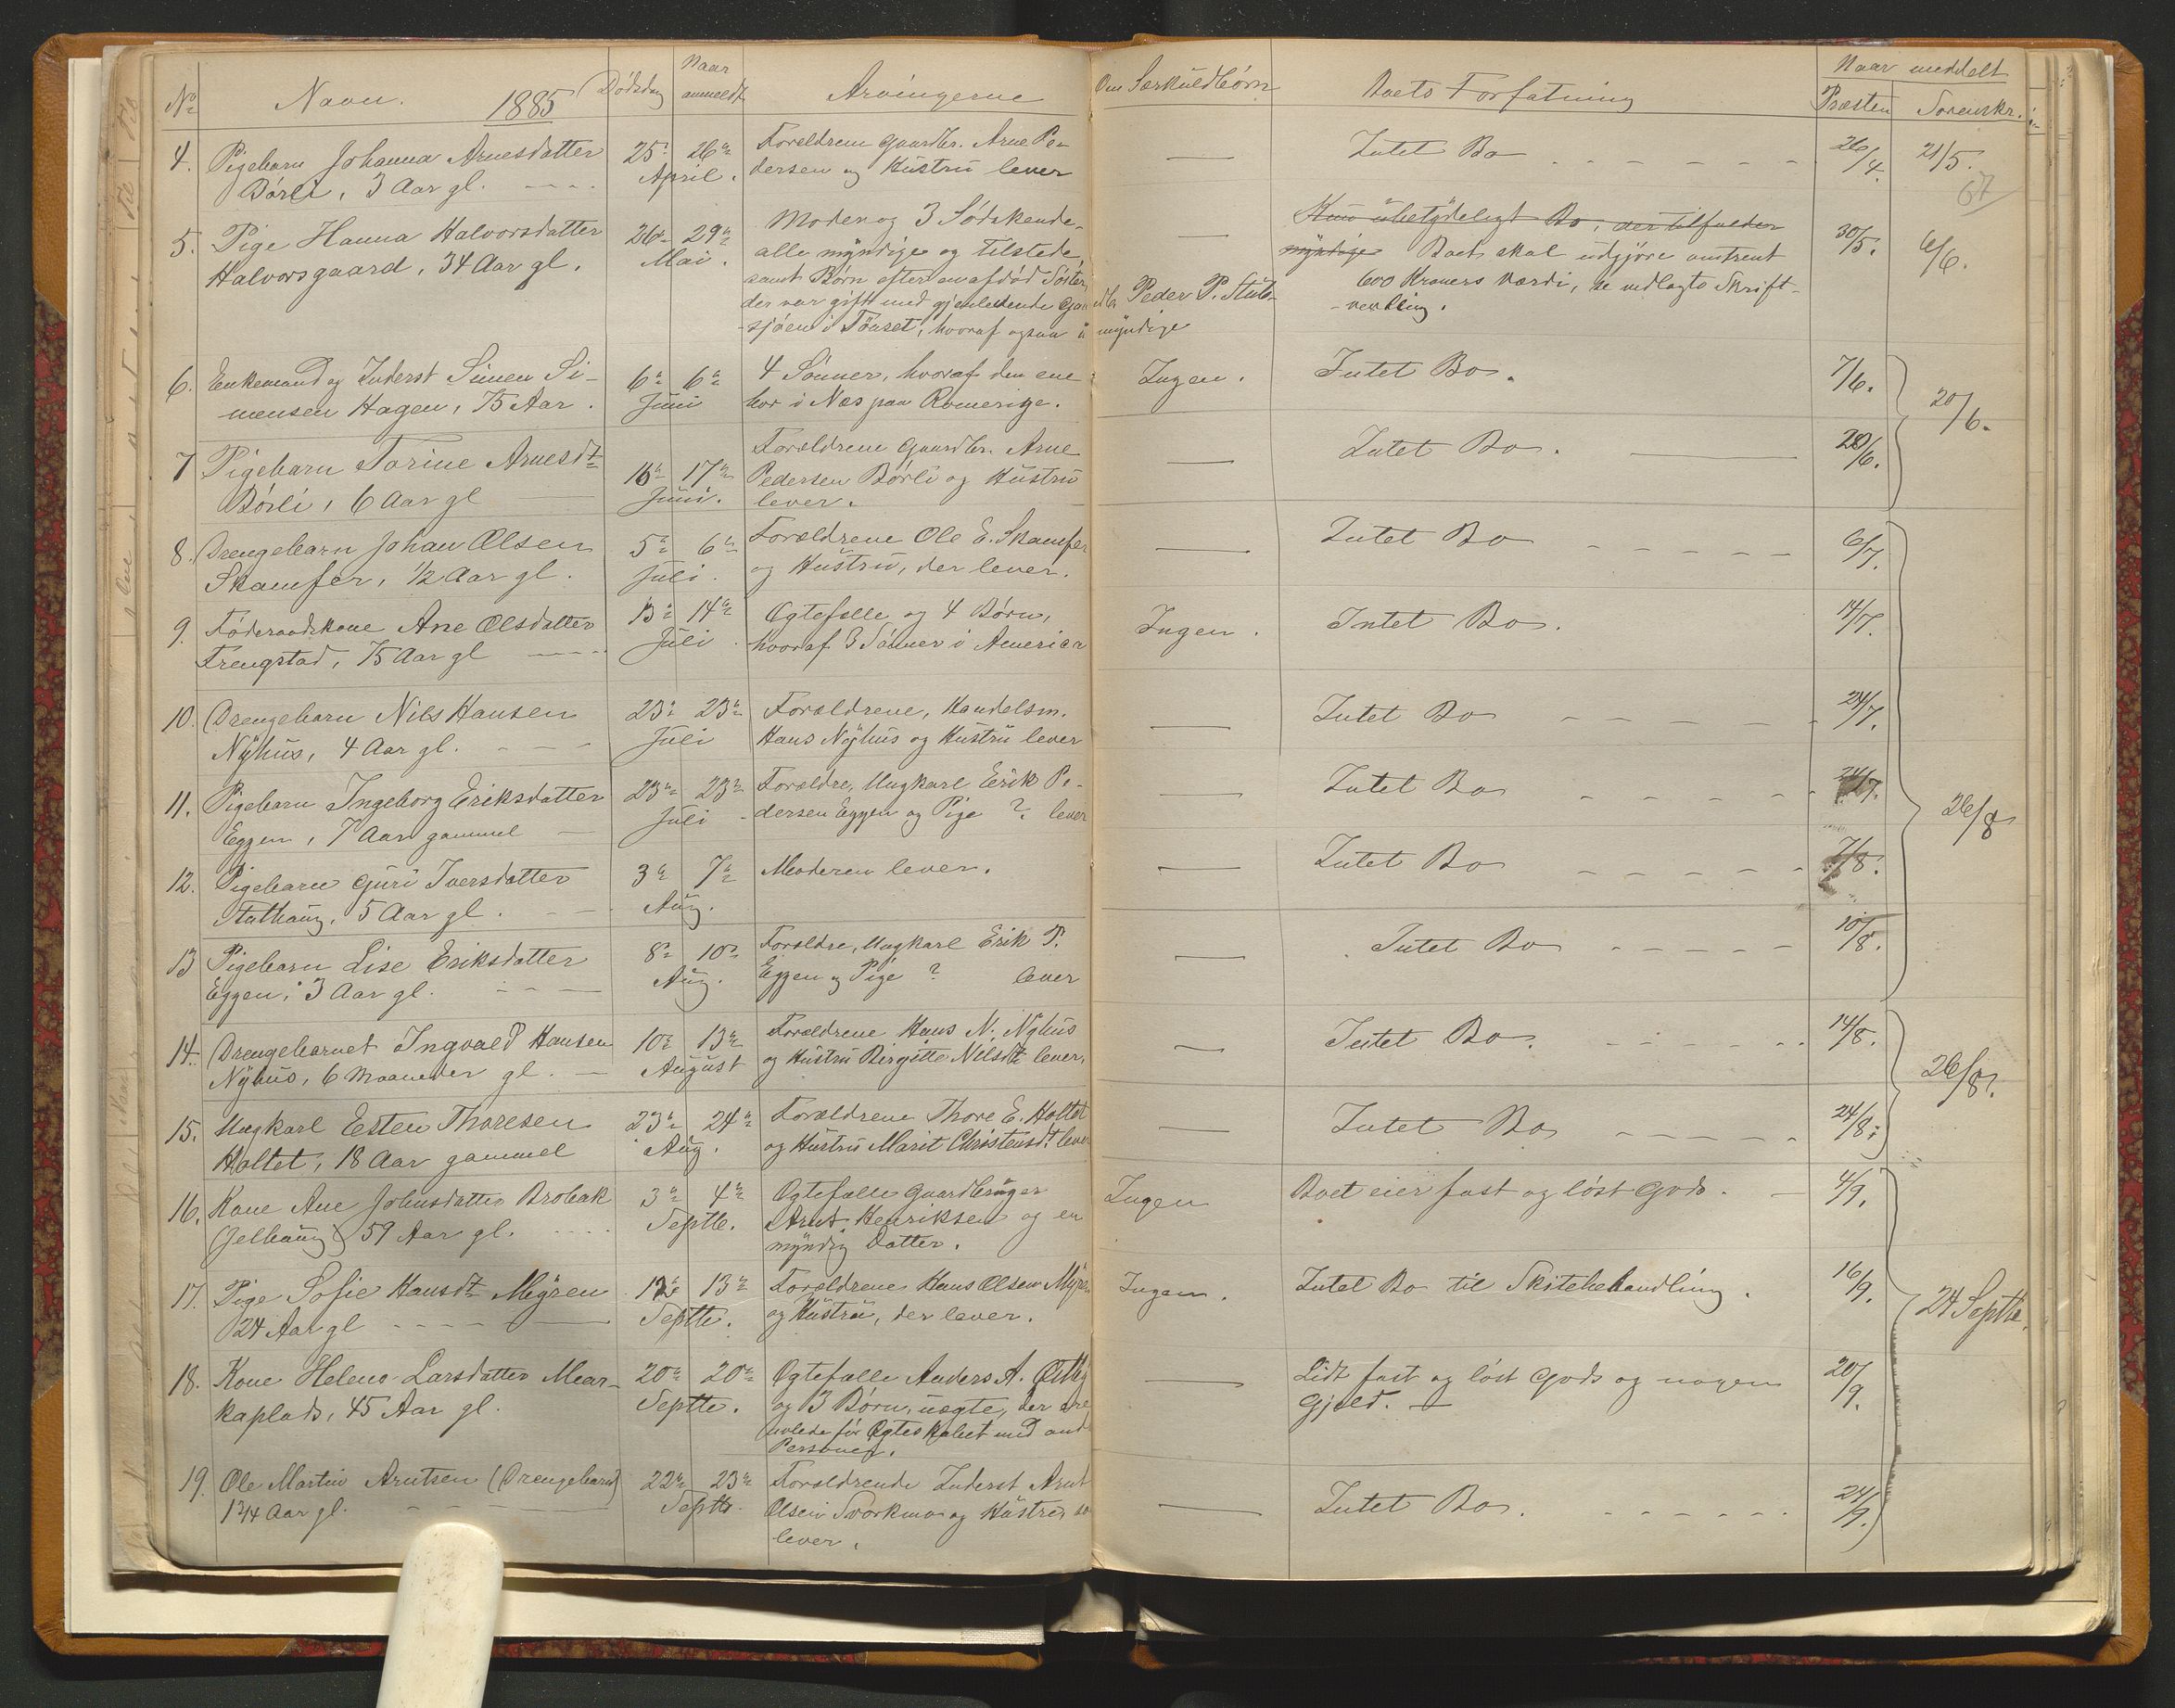 No Navn. 1885 Dødsdag Naar anmeldt Arvingerne Om Særkuldbörn Boets Forfatning Naar meddelt Præsten Sorenskr.
67
4. Pigebarn Johanna Arnesdatter 25de 26de Forældrene Gaardbr. Arne Pe- — Intet Bo 26/4. 21/5.
Börli, 3 Aar gl. April. dersen og Hustru lever
5. Pige Hanna Halvorsdatter 26de 29de Moder og 3 Södskende, — Kun übetydeligt Bo, der tilfalder 30/5. 6/6.
Halvorsgaard, 34 Aar gl. Mai. alle myndige og tilstede, myndige Boet skal udgjöre omtrent
samt Börn efter en afdöd Söster, 600 Kroners Værdi, se vedlagte Skrift-
der var gift med gjenlevende Gaardbr Peder P. Stub- -vexling.
sjöen i Tönset, hvoraf ogsaa umyndige
6. Enkemand og Inderst Simen Si- 6te 6te 4 Sönner, hvoraf den ene Ingen. Intet Bo. 7/6. 20/6.
mensen Hagen, 75 Aar. Juni bor i Næs paa Romerige.
7 Pigebarn Torine Arnesdt 16de 17de Forældrene Gaardbr. Arne — Intet Bo. 20/6.
Börli, 6 Aar gl Juni. Pedersen Börli og Hustru
lever.
8. Drengebarn Johan Olsen 5te 6te Forældrene Ole E. Skamfer — Intet Bo 6/7.
Skamfer, 1/2 Aar gl. Juli. og Hustru, der lever.
9. Föderaadskone Ane Olsdatter 13de 14de Ægtefælle og 4 Börn, Ingen. Intet Bo. 14/7.
Trengstad, 75 Aar gl Juli hvoraf 3 Sönner i America
10. Drengebarn Nils Hansen 23de 23de Forældrene, Handelsm. — Intet Bo 24/7.
Nyhus, 4 Aar gl. Juli Hans Nyhus og Hustru lever
11. Pigebarn Ingeborg Eriksdatter 23de 23de Forældre, Ungkarl Erik Pe- — Intet Bo 24/7. 26/8
Eggen, 7 Aar gammel Juli dersen Eggen og Pige ? lever
12. Pigebarn Guri Iversdatter 3de 7de Moderen lever. — Intet Bo 7/8.
5 Aar gl. Aug.
13 Pigebarn Lise Eriksdatter 8de 10de Forældre, Ungkarl Erik P. — Intet Bo 10/8.
Eggen, 3 Aar gl. Aug. Eggen og Pige ? lever
14. Drengebarnet Ingvald Hansen 10de 13de Forældrene Hans N. Nyhus — Intet Bo. 14/8. 26/8.
Nyhus, 6 Maaneder gl. August og Hustru Birgitte Nilsdt lever.
15. Ungkarl Esten Thoresen 23de 24de Forældrene Thore E. Holtet — Intet Bo 24/8.
Holtet, 18 Aar gammel Aug. og Hustru Marit Christensdt. lever
16. Kone Ane Johnsdatter Brobak 3de 4de Ægtefælle Gaardbruger Ingen Boet eier fast og löst Gods. 4/9.
(Jelhaug) 59 Aar gl. Septbr. Arnt Henriksen og en
myndig Datter.
17. Pige Sofie Hansdt Myren 12te 13de Forældrene Hans Olsen Myren Ingen. Intet Bo til Skiftebehandling. 16/9. 24 Septbr.
24 Aar gl Septbr. og Hustru, der lever.
18. Kone Helene Larsdatter Mear- 20de 20de Ægtefælle Anders A. Østby — Lidt fast og löst Gods og nogen 20/9.
kaplads, 45 Aar gl. Septbr. og 3 Börn, uægte, der ere Gjeld.
avlede för Ægteskabet med and
Personer.
19. Ole Martin Arntsen (Drengebarn) 22de 23de Forældrende Inderst Arnt — Intet Bo. 24/9.
1 3/4 Aar gl. Septbr. Olsen Svorkmo og Hustru so
lever.